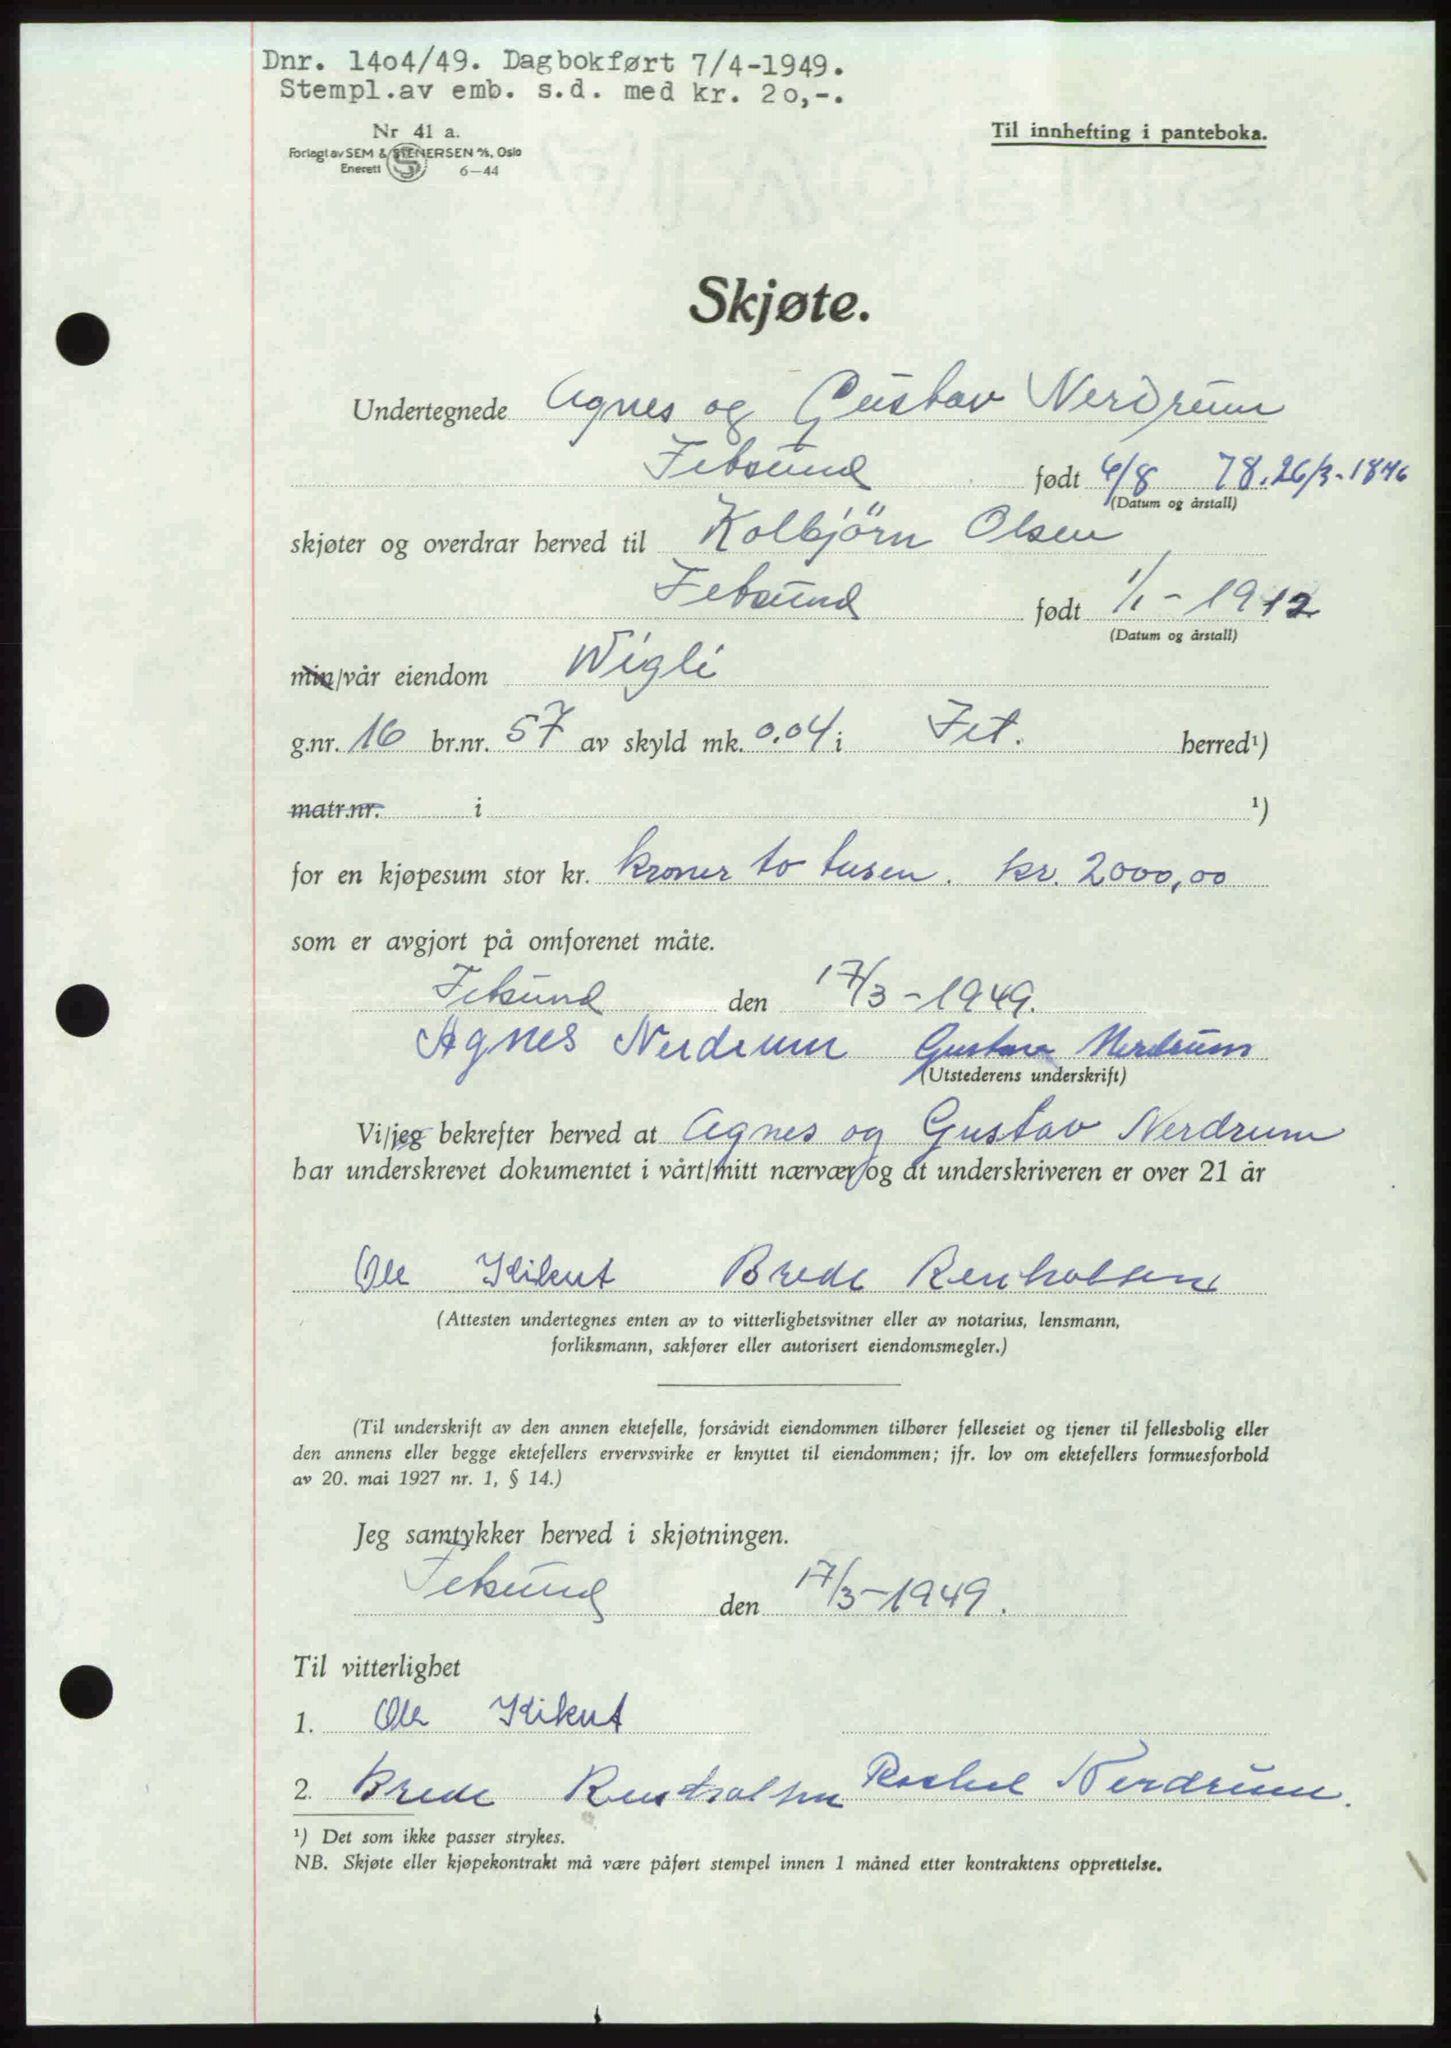 Dnr. 1404/49. Dagbokført 7/4-1949.
Stempl.av emb. s.d. med kr. 20,-.
Nr 41 a.
Forlagt av SEM & STENERSEN A/S, Oslo
Enerett 6—44
Til innhefting i panteboka.
Skjøte.
Undertegnede Agnes og Gustav Nerdrum
Fetsund født 6/8 78. 26/3-1876
(Datum og årstall)
skjøter og overdrar herved til Kolbjörn Olsen
Fetsund født 1/1-1912
(Datum og årstall)
min/vår eiendom Wigli
g.nr. 16 br.nr. 57 av skyld mk. 0.04 i Fet. herred¹)
matr.nr. i ¹)
for en kjøpesum stor kr. kroner to tusen. kr. 2000,00
som er avgjort på omforenet måte.
Fetsund den 17/3-1949.
Agnes Nerdrum Gustav Nerdrum
(Utstederens underskrift)
Vi/jeg bekrefter herved at Agnes og Gustav Nerdrum
har underskrevet dokumentet i vårt/mitt nærvær og at underskriveren er over 21 år
Ole Kikut Brede Renholtsen
(Attesten undertegnes enten av to vitterlighetsvitner eller av notarius, lensmann,
forliksmann, sakfører eller autorisert eiendomsmegler.)
(Til underskrift av den annen ektefelle, forsåvidt eiendommen tilhører felleseiet og tjener til fellesbolig eller
den annens eller begge ektefellers ervervsvirke er knyttet til eiendommen; jfr. lov om ektefellers formuesforhold
av 20. mai 1927 nr. 1, § 14.)
Jeg samtykker herved i skjøtningen.
Fetsund den 17/3-1949.
Til vitterlighet
1. Ole Kikut
2. Brede Renholtsen Rachel Nerdrum.
¹) Det som ikke passer strykes.
NB. Skjøte eller kjøpekontrakt må være påført stempel innen 1 måned etter kontraktens opprettelse.